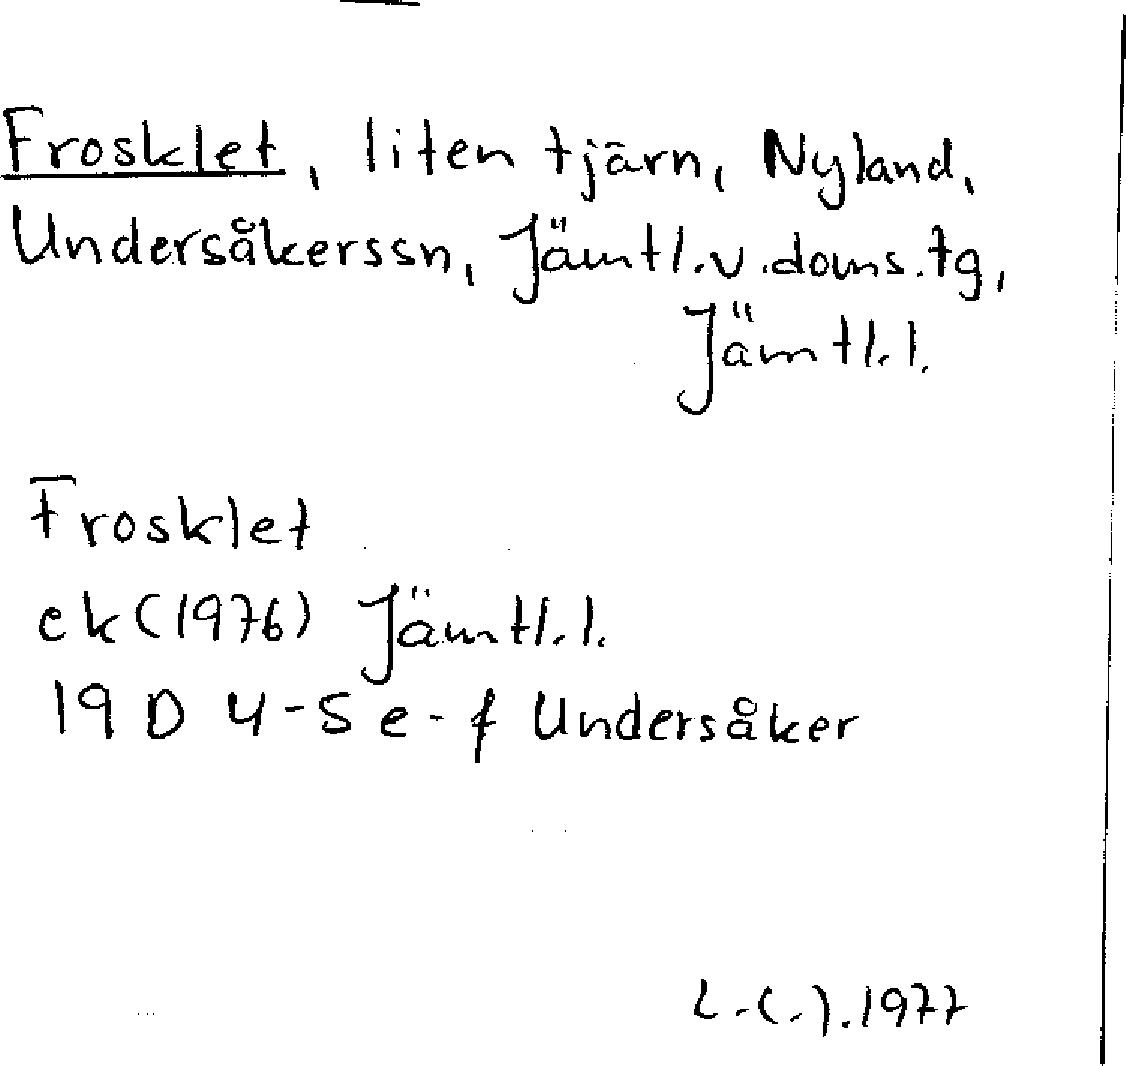 Frosklet, liten tjärn, Nyland,
Undersåkerssn, Jämtl.v.doms.tg,
Jämtl.l.
Frosklet
ek(1976) Jämtl.l.
19 D 4-5 e-f Undersåker
1977